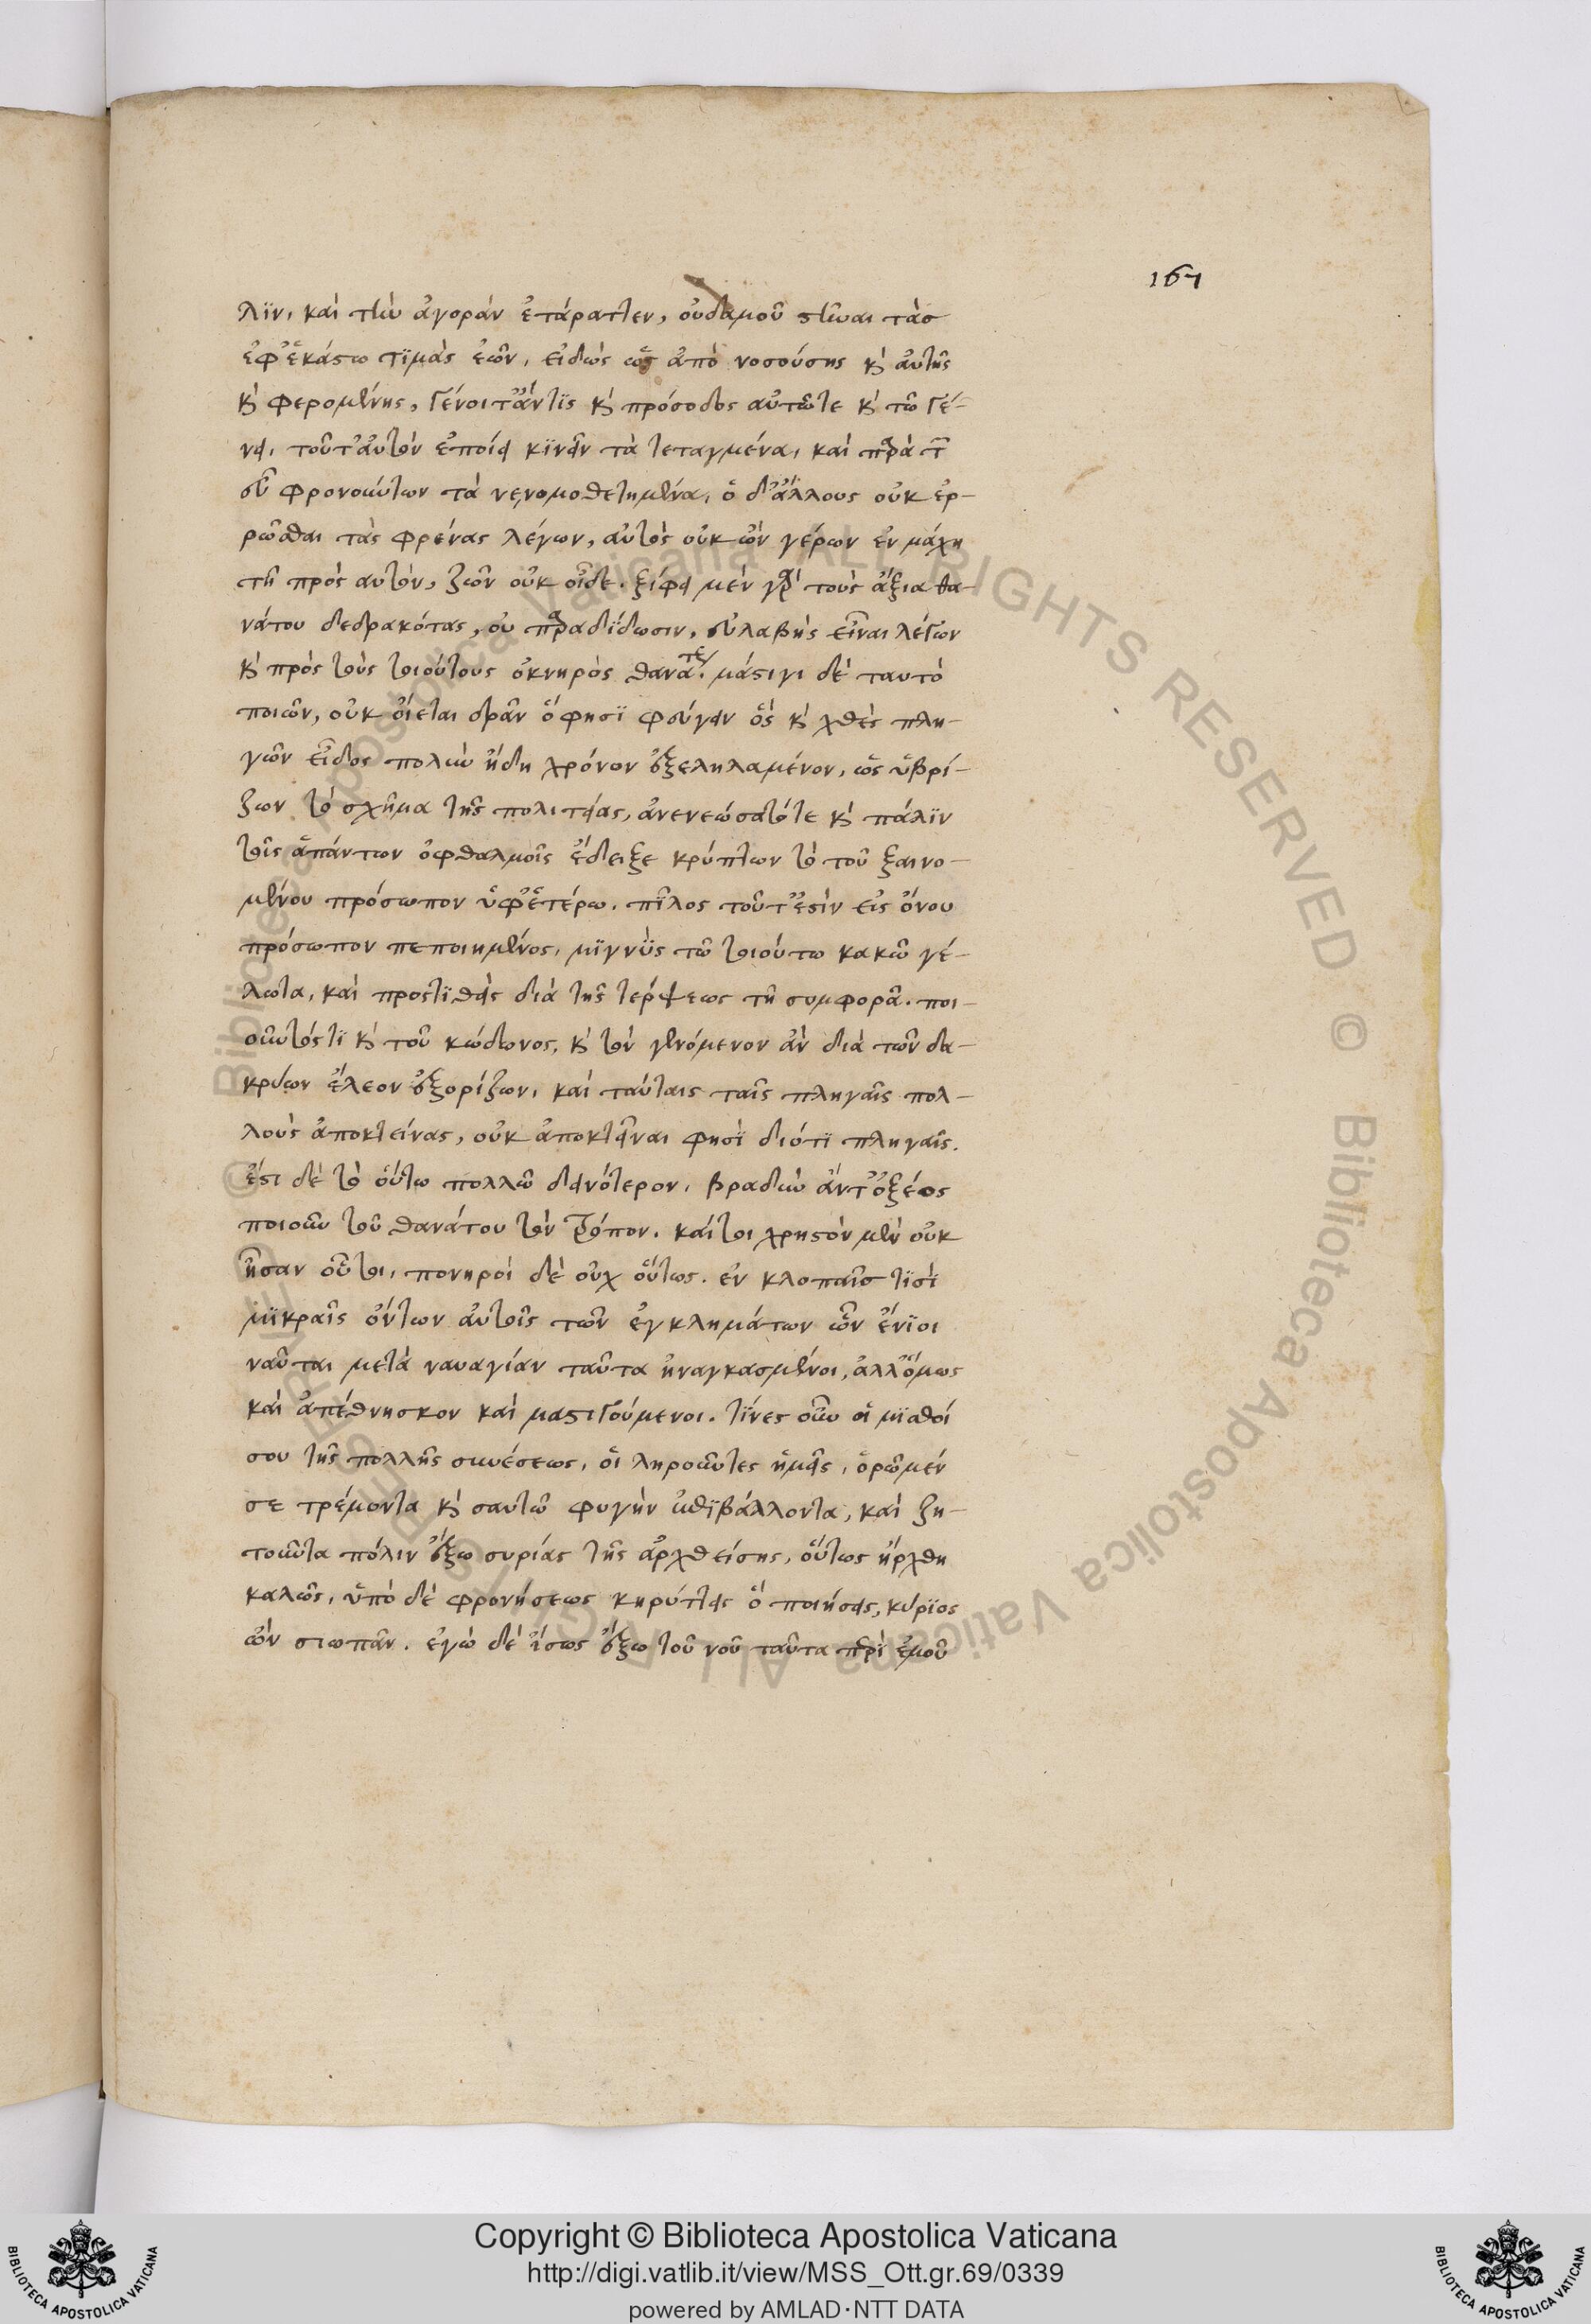 167
λϊν, καὶ τὴν ἀγορὰν ἐτάραττεν, οὐδαμοῦ στῆναι τὰσ
ἐφ' ἑκάστω τϊμὰς ἐῶν, εἰδὼς ὡς ἀπὸ νοσούσης κ αὐτῆς
κ φερομένης, γένοιτ' ἄν τϊς κ πρόσοδος αὐτῶ τε κ τῶ γέ-
νει, τοῦτ' αὐτὸν ἐποίει κϊνεῖν τὰ τεταγμένα, καὶ παρὰ τῶν
εὖ φρονούντων τὰ νενομοθετημένα, ὁ δ' ἄλλους οὐκ ἐρ-
ρῶσθαι τὰς φρένας λέγων, αὐτὸς οὐκ ὢν γέρων ἐν μάχη
τῆ πρὸς αυτὸν, ζῶν οὐκ οἶδε. ξίφει μὲν γὰρ τοὺς ἄξια θα-
νάτου δεδρακότας, ου παραδίδωσιν, εὐλαβὴς εἶναι λέγων
κ πρὸς τοὺς τοιούτους ὀκνηρὸς θανάτους. μάστιγι δὲ ταυτὸ
ποιῶν, οὐκ οἴεται δρᾶν ὅ φησϊ φεύγειν ὅς κ χθὲς πλη-
γῶν εἶδος πολὺν ἤδη χρόνον ἐξεληλαμένον, ὡς ὑβρί-
ζων τὸ σχῆμα τῆς πολιτείας, ἀνενεώσατό τε κ πάλϊν
τοῖς ἁπάντων ὀφθαλμοῖς ἔδειξε κρύπτων τὸ τοῦ ξαινο-
μένου πρόσωπον ὑφ' ἑτέρω. πῖλος τοῦτ' ἐστὶν εἰς ὄνου
πρόσωπον πεποιημένος, μϊγνὺς τῶ τοιούτω κακῶ γέ-
λωτα, καὶ προστϊθεὶς διὰ τῆς τέρψεως τῆ συμφορᾶ. ποι-
οῦντός τϊ κ τοῦ κώδωνος, κ τὸν γενόμενον ἂν διὰ τῶν δα-
κρύων ἔλεον ἐξορίζων, καὶ ταύταις ταῖς πληγαῖς πολ-
λοὺς ἀποκτείνας, οὐκ ἀποκτεῖναι φησὶ διότϊ πληγαῖς.
ἔστι δὲ τὸ οὕτω πολλῶ δεινότερον, βραδὺν ἀντ' ὀξέος
ποιοῦν τοῦ θανάτου τὸν τρόπον. καίτοι χρηστὸν μὲν οὐκ
ἦσαν οὗτοι, πονηροὶ δὲ οὐχ οὕτως. ἐν κλοπαῖσ τϊσὶ
μϊκραῖς ὄντων αὐτοῖς τῶν ἐγκλημάτων ὧν ἔνϊοι
ναῦται μετὰ ναυαγίαν ταῦτα ἠναγκασμένοι, ἀλλ' ὅμως
καὶ ἀπέθνησκον καὶ μαστιγούμενοι. τίνες οὖν οἱ μϊσθοί
σου τῆς πολλῆς συνέσεως, οἱ ληροῦντες ἡμεῖς, ὁρῶμέν
σε τρέμοντα κ σαυτῶ φυγὴν ἐπϊβάλλοντα, καὶ ζη-
τοῦντα πόλιν ἔξω συρίας τῆς ἀρχθείσης, οὕτως ἤρχθη
καλῶς, ὑπὸ δὲ φρονήσεως κηρύττεις ὁ ποιήσεις, κύρϊος
ὢν σιωπᾶν. ἐγὼ δὲ ἴσως ἔξω τοῦ νοῦ ταῦτα περὶ ἐμοῦ
Copyright © Biblioteca Apostolica Vaticana
http://digi.vatlib.it/view/MSS_Ott.gr.69/0339
powered by AMLAD·NTT DATA